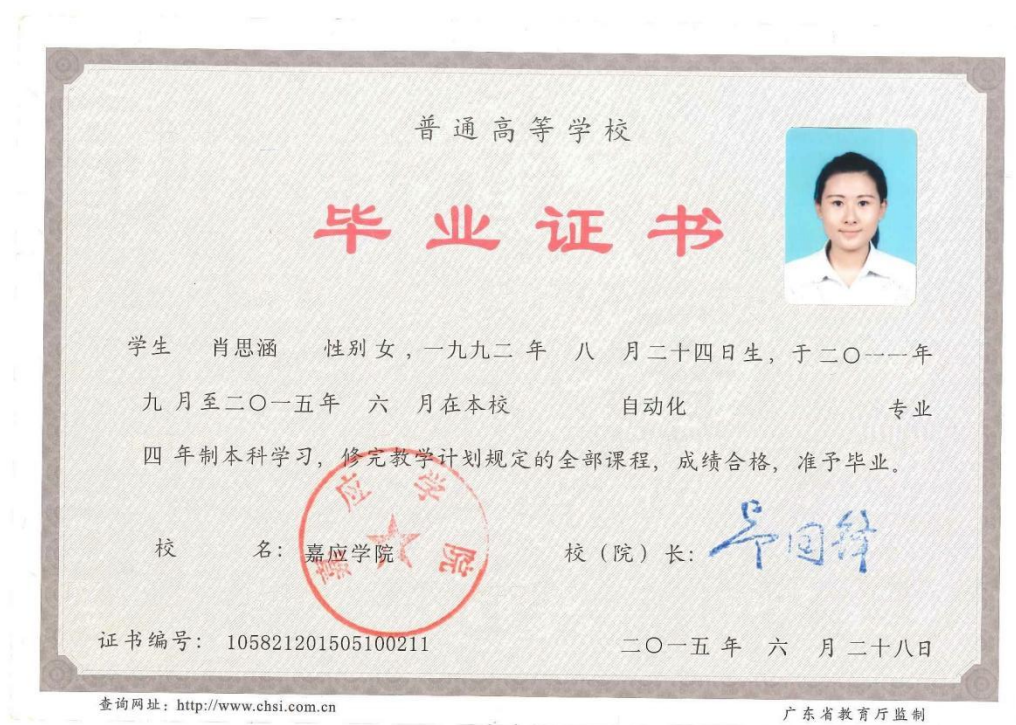 普通高等学校
毕业证书
学生 肖思涵 性别 女 , 一九九二 年 八 月二十四日生, 于二〇一一年
九 月至二〇一五年 六 月在本校 自动化 专业
四 年制本科学习, 修完教学计划规定的全部课程, 成绩合格, 准予毕业。
校 名: 嘉应学院
嘉应学院
校（院）长:
证书编号: 105821201505100211
二〇一五 年 六 月 二十八日
查询网址: http://www.chsi.com.cn
广东省教育厅监制